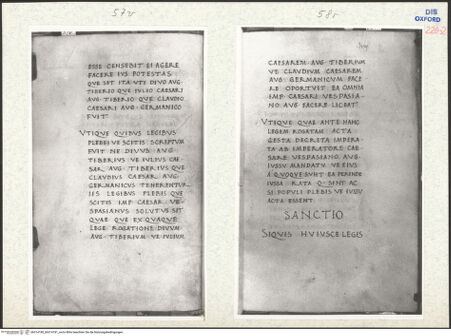 57v
58r
DIS
OXFORD
ESSE CENSEBIT EI AGERE
FACERE IUS POTESTAS
QUE SIT ITA UTI DIVO AUG
TIBERIO QUE IULIO CAESARI
AUG TIBERIO QUE CLAUDIO
CAESARI AUG GERMANICO
FUIT
VTIQUE QUIBUS LEGIBUS
PLEBEI VE SCITIS SCRIPTUM
FUIT NE DIVUS AUG
TIBERIUS VE IULIUS CAE
SAR AUG TIBERIUS QUE
CLAUDIUS CAESAR AUG
GERMANICUS TENERENTUR
IIS LEGIBUS PLEBIS QUE
SCITIS IMP CAESAR VE
SPASIANUS SOLUTUS SIT
QUAE QUE EX QUAQUE
LEGE ROGATIONE DIVUM
AUG TIBERIUM VE IULIUM
CAESAREM AUG TIBERIUM
VE CLAUDIUM CAESAREM
AUG GERMANICUM FACE
RE OPORTUIT EA OMNIA
IMP CAESARI VESPASIA
NO AUG FACERE LICEAT
VTIQUE QUAE ANTE HANC
LEGEM ROGATAM ACTA
GESTA DECRETA IMPERA
TA AB IMPERATORE CAE
SARE VESPASIANO AUG
IUSSU MANDATU VE EIUS
A QUOQUE SUNT EA PERINDE
IUSSA RATA Q SINT AC
SI POPULI PLEBIS VE IUSSU
ACTA ESSENT
SANCTIO
SIQUIS HUIUSCE LEGIS